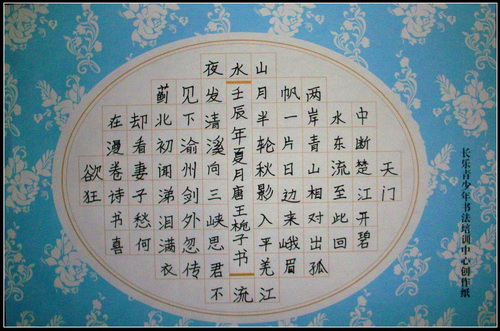 长乐青少年书法培训中心创作纸
天门
中断楚江开碧
水东流至此回
两岸青山相对出孤
帆一片日边来峨眉
山月半轮秋影入平羌江
水
壬辰年夏月唐王子书
流
夜发清溪向三峡思君不
见下渝州剑外忽传
蓟北初闻涕泪满衣
却看妻子愁何
在漫卷诗书喜
欲狂